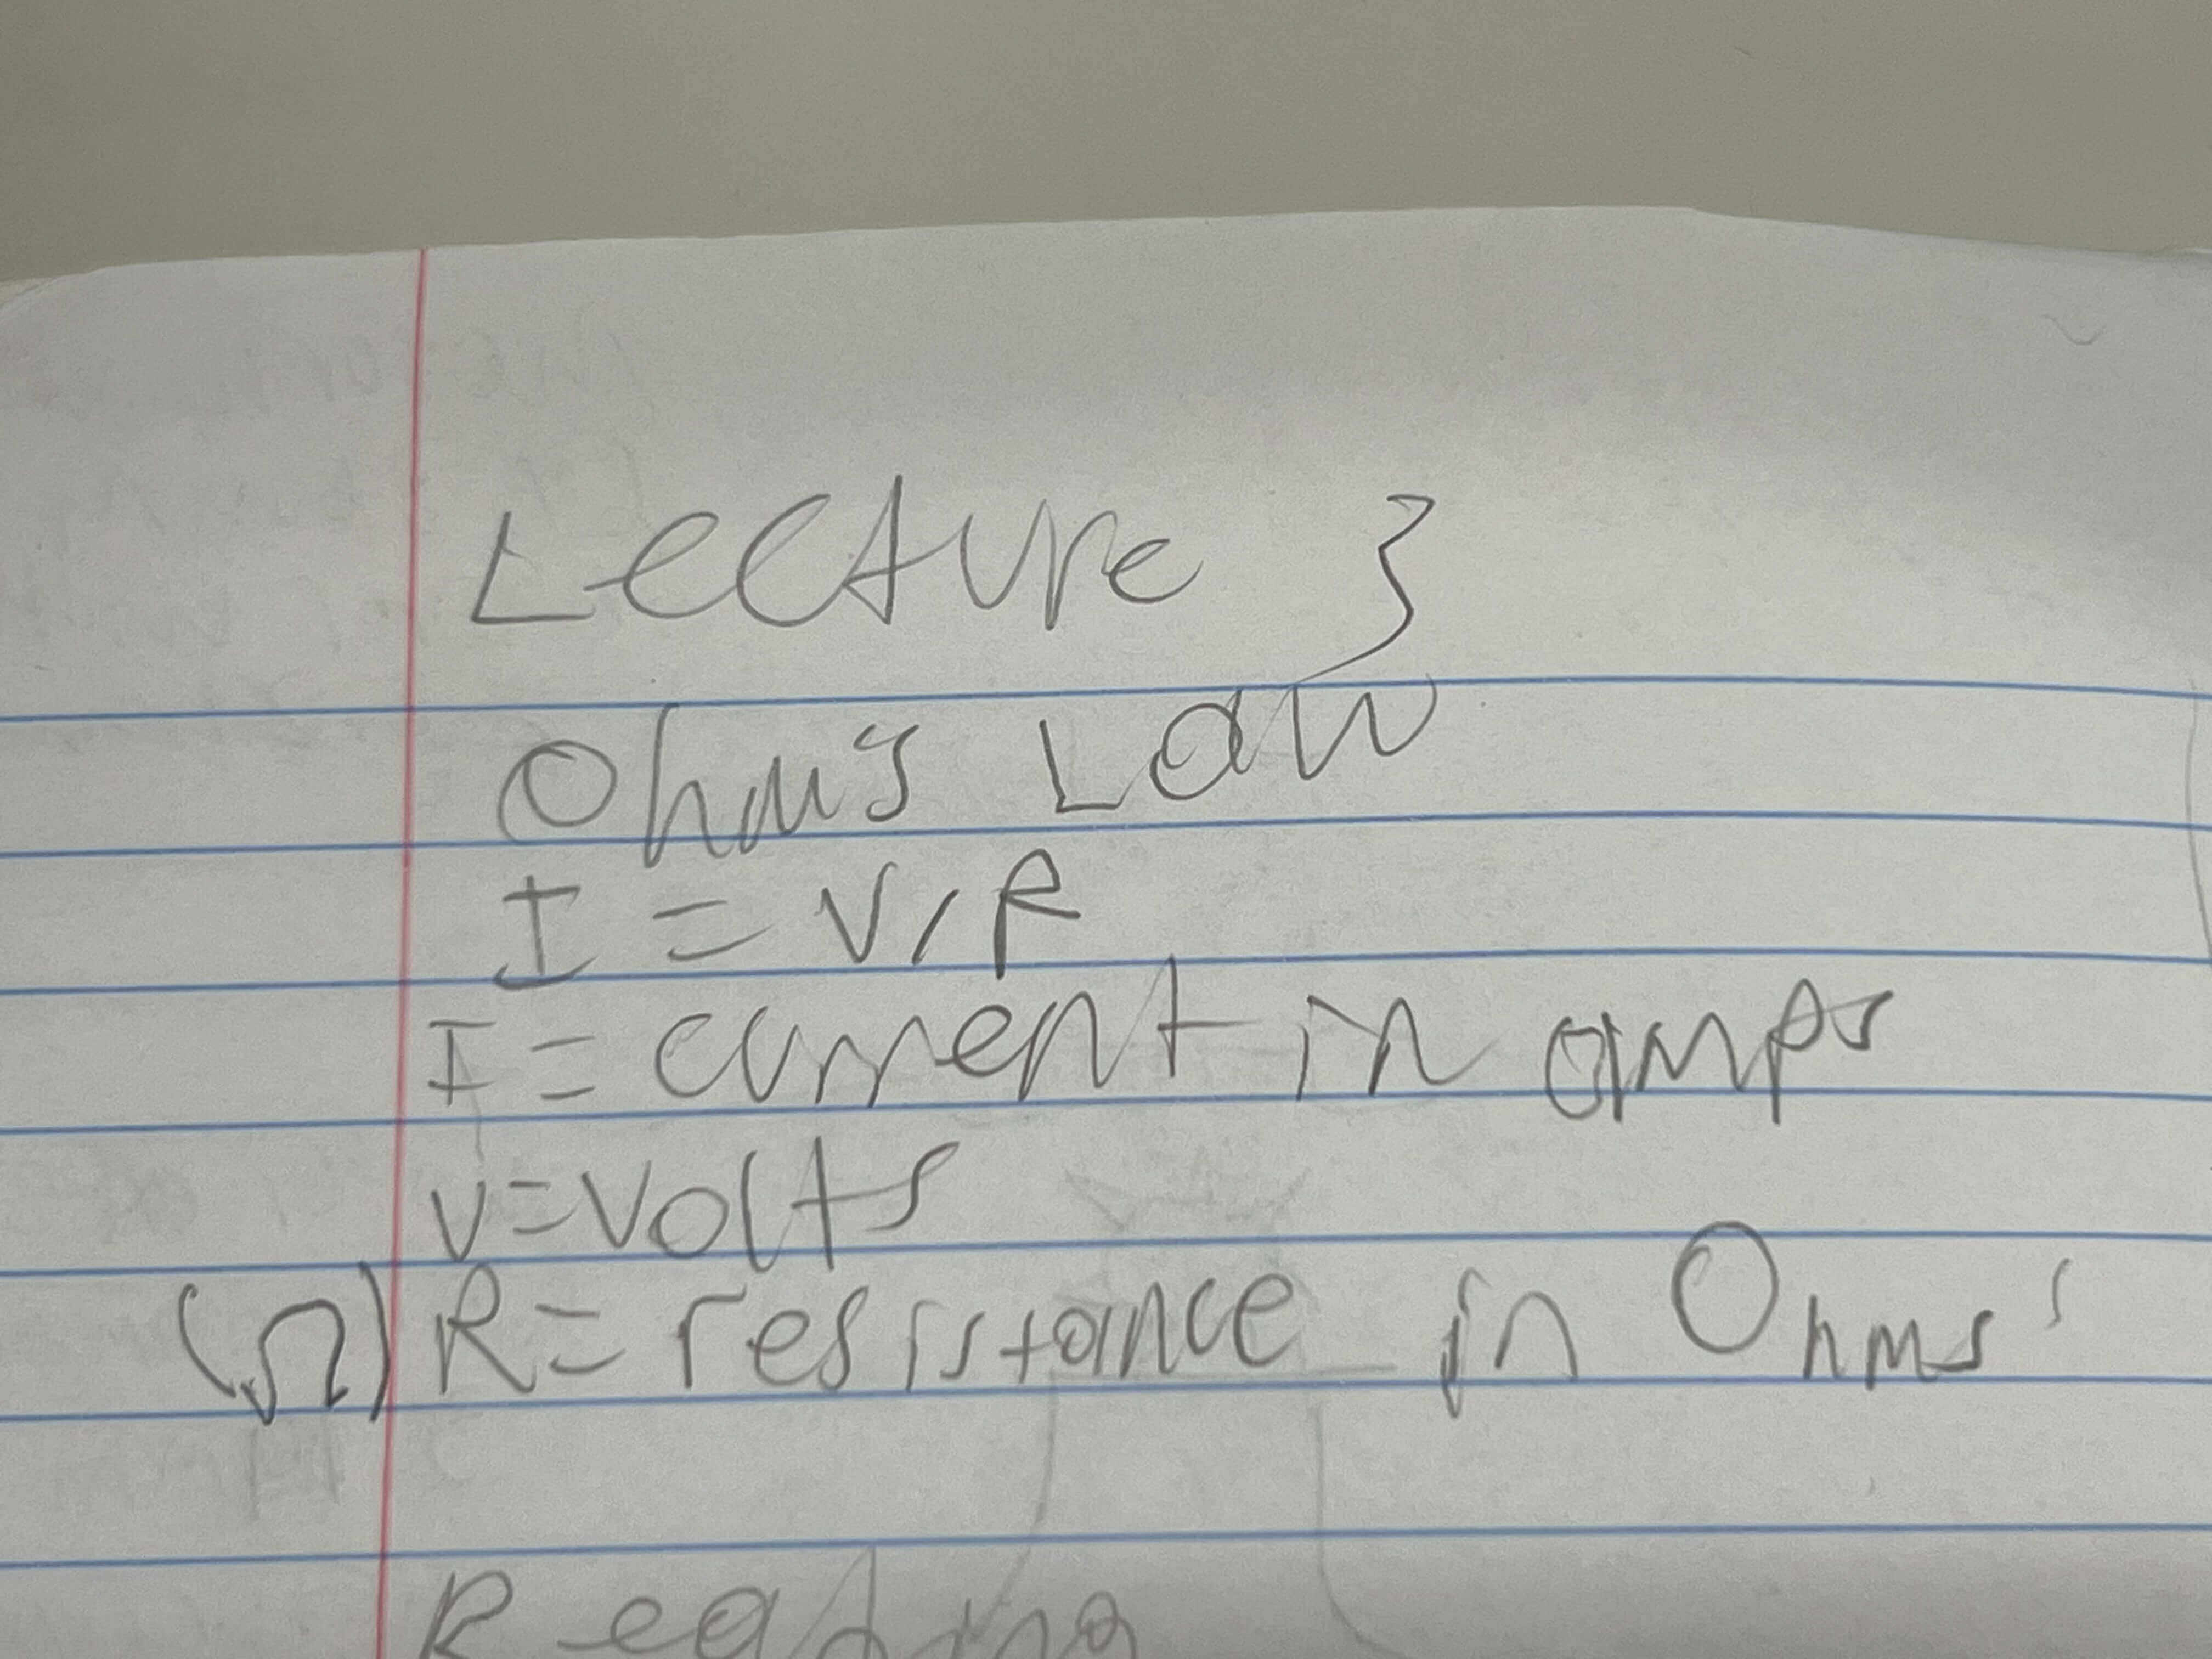 Lecture 3
Ohm's Law
I = V/R
I = current in amps
V=Volts
(Ω) R= resistance in Ohms'
Reading